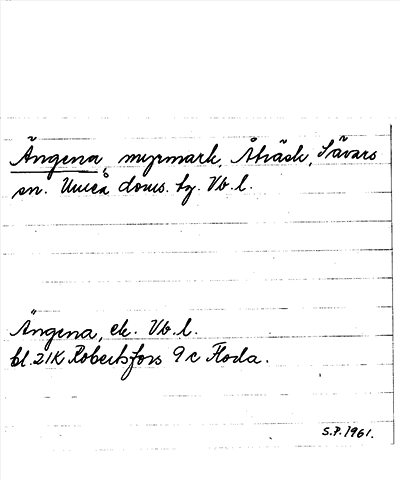 Ängena, myrmark, Åträsk, Sävars
sn. Umeå doms. tg. Vb. l.
Ängena, ek. Vb. l.
bl. 21K Robertsfors 9 c Floda.
S.P. 1961.